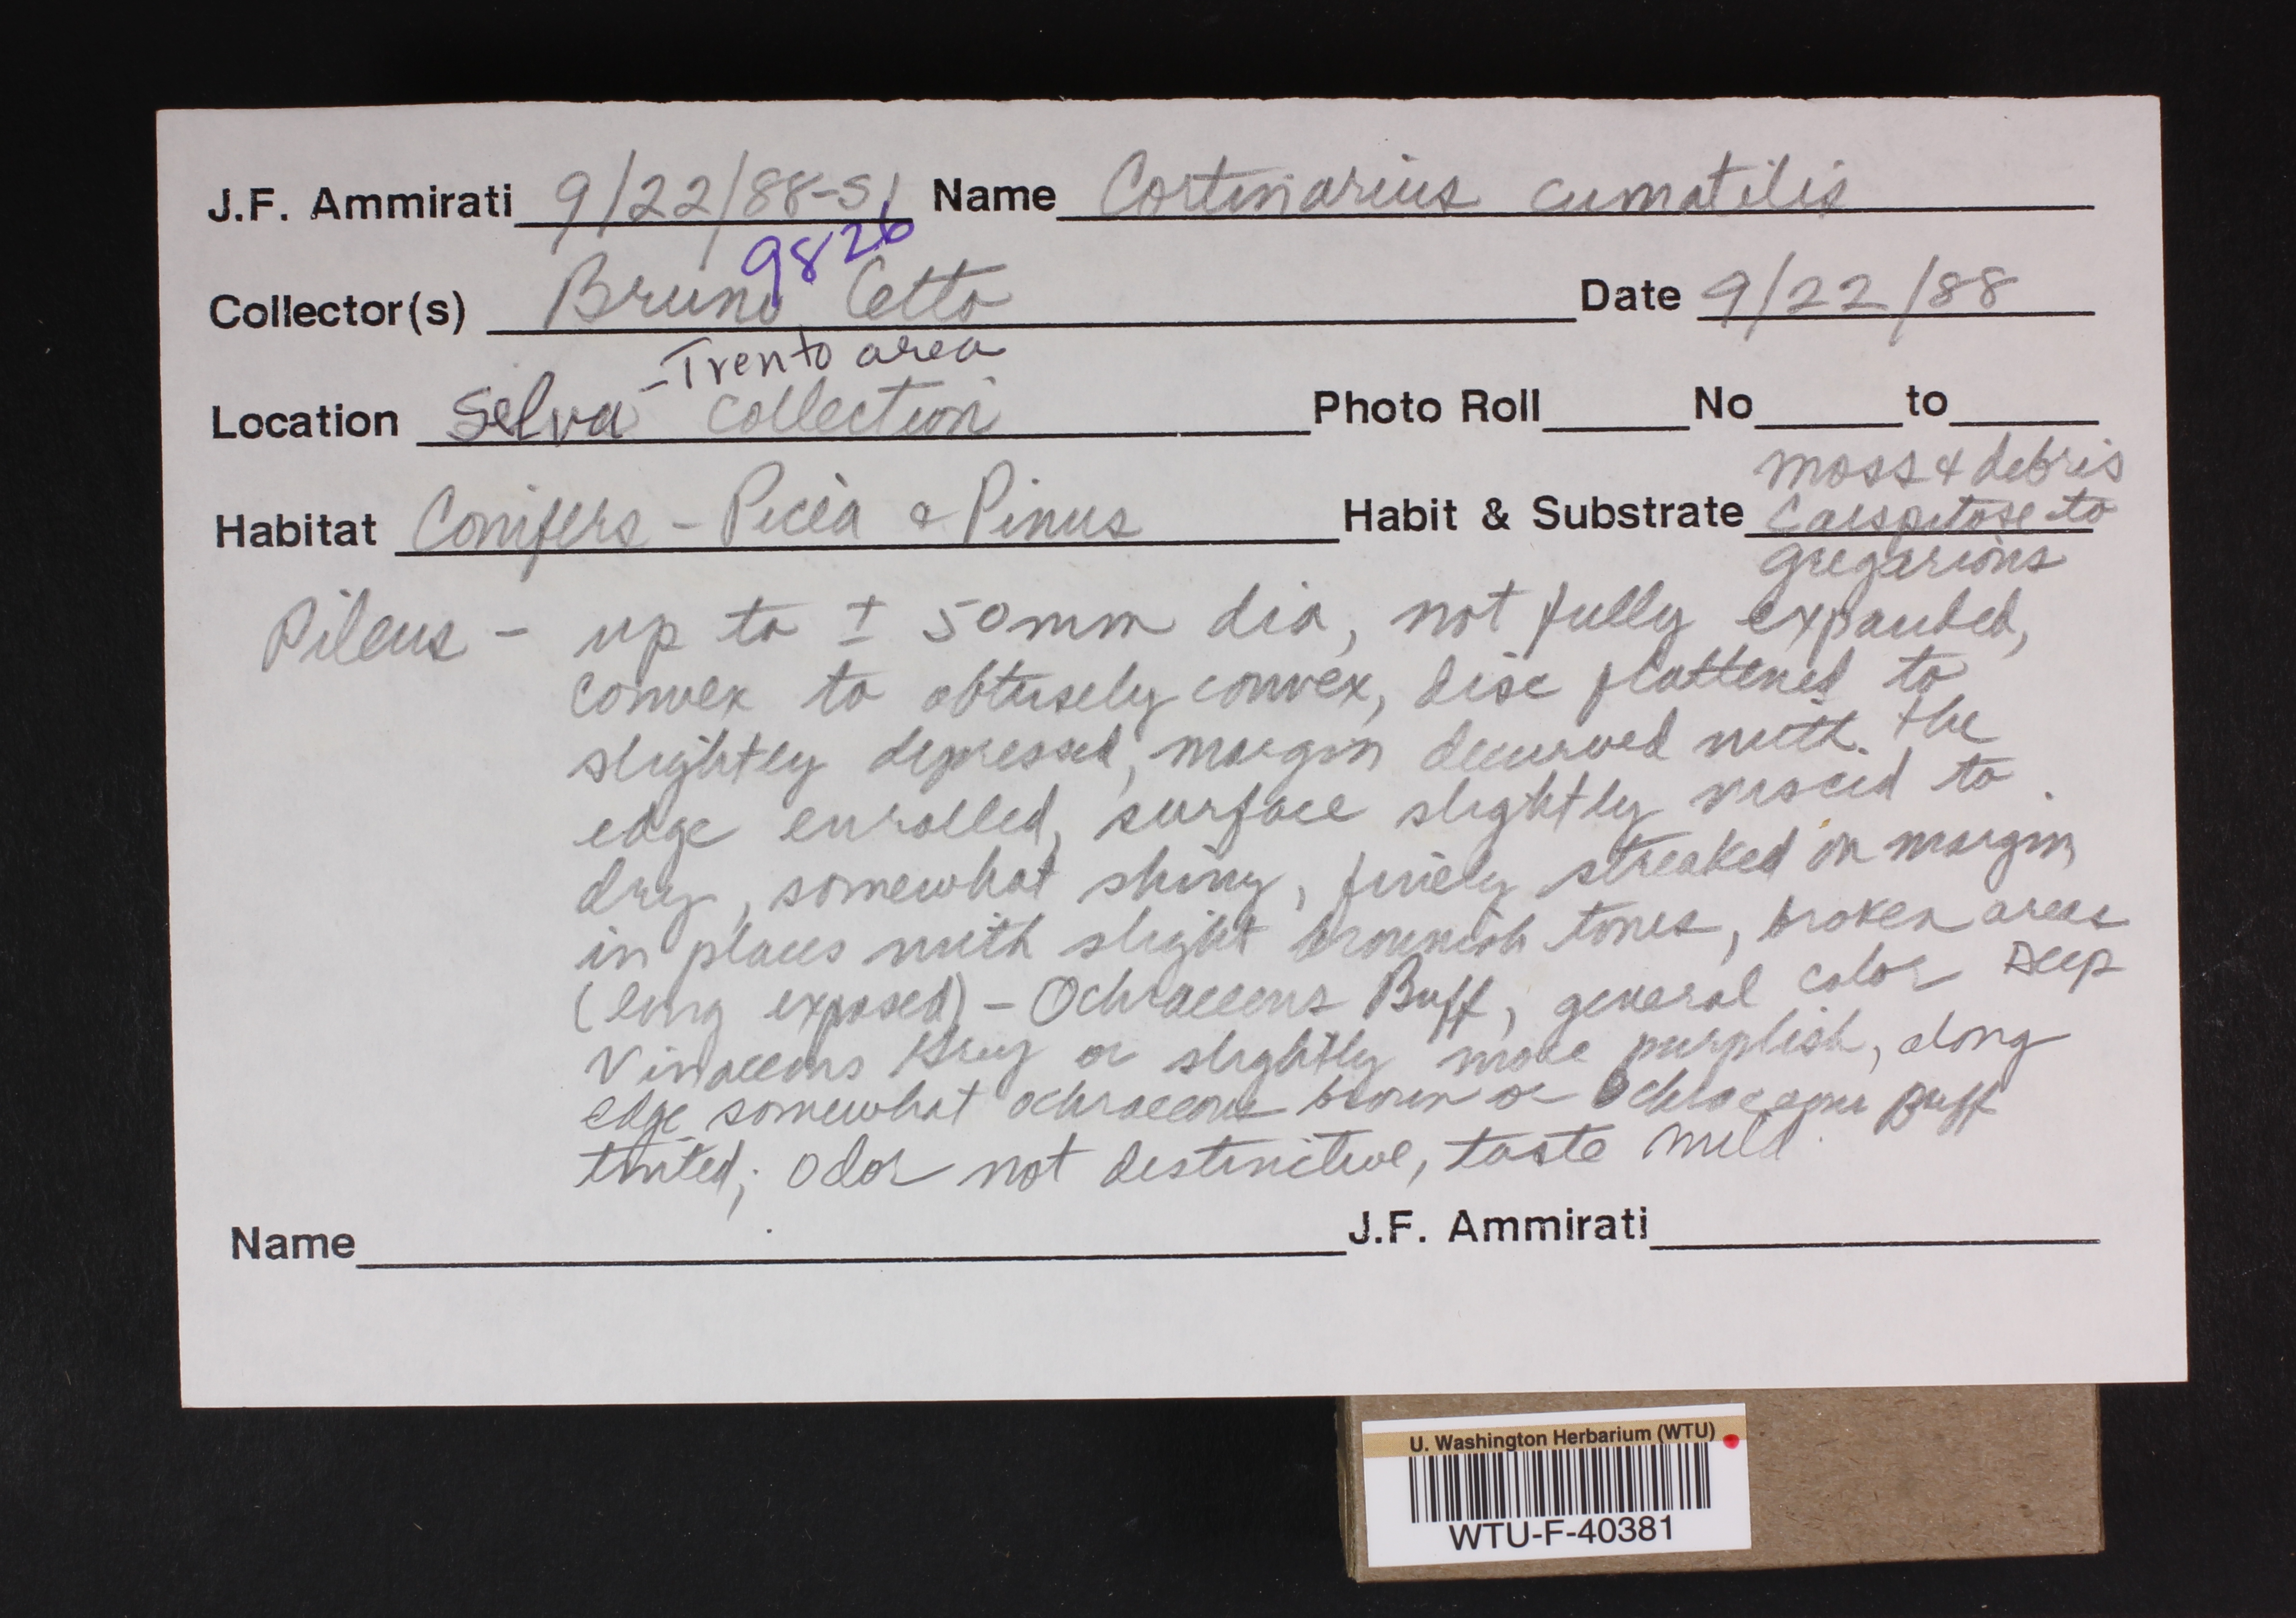 J.F. Ammirati 9/22/88-S1 Name Cortinarius cumatilis
9826
Collector(s) Bruno Cetto Date 9/22/88
-Trento area
Location Selva collection Photo Roll No to
moss & debris
Habitat Conifers - Picea & Pinus Habit & Substrate Caespitose to
gregarious
Pileus - up to ± 50mm dia, not fully expanded,
convex to obtusely convex, disc flattened to
slightly depressed, margin decurved with the
edge enrolled, surface slightly viscid to
dry, somewhat shiny, finely streaked on margin
in places with slight brownish tones, broken areas
(long exposed) - Ochraceous Buff, general color Deep
Vinaceous Grey or slightly more purplish, along
edge somewhat ochraceous brown or Ochraceous Buff
tinted; odor not distinctive, taste mild.
Name J.F. Ammirati
U. Washington Herbarium (WTU)
WTU-F-40381